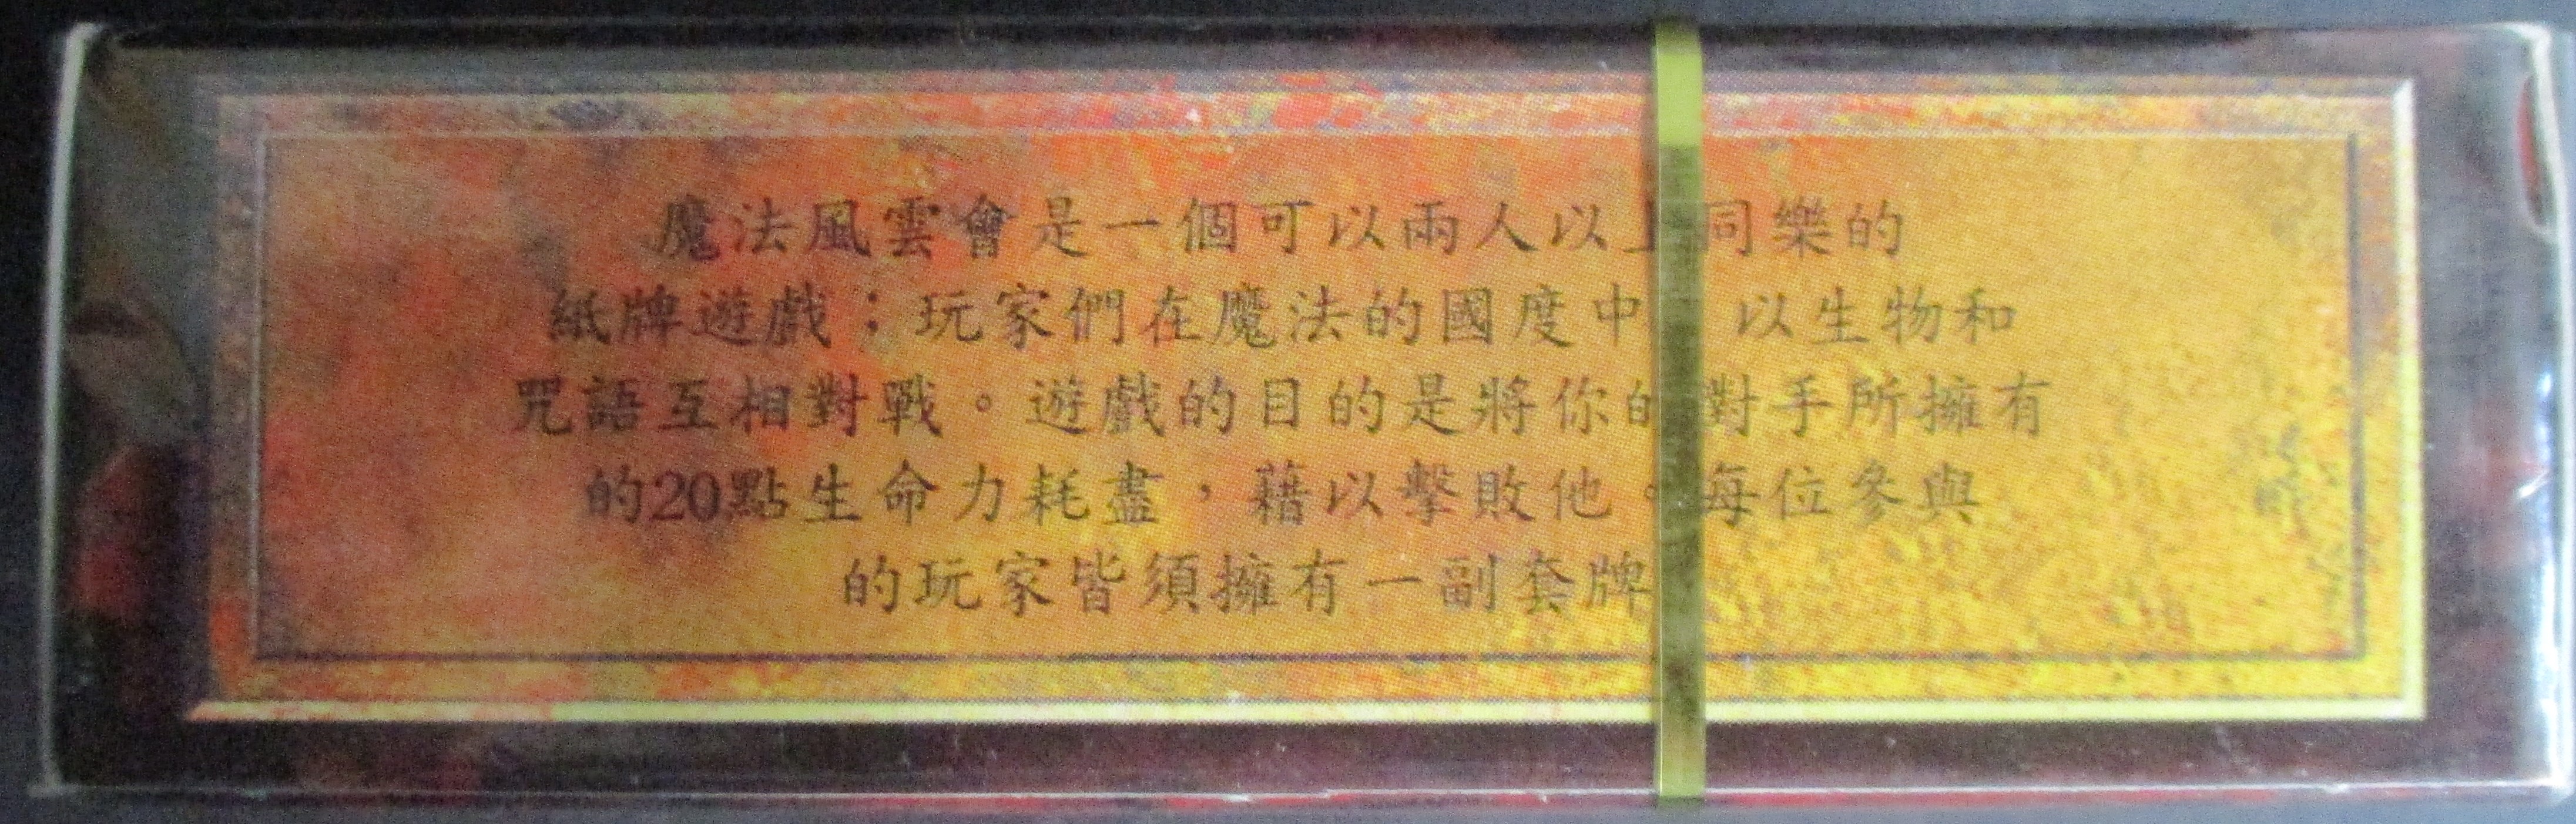 魔法風雲會是一個可以兩人以上同樂的
紙牌遊戲；玩家們在魔法的國度中 以生物和
咒語互相對戰。遊戲的目的是將你的對手所擁有
的20點生命力耗盡，藉以擊敗他。每位參與
的玩家皆須擁有一副套牌